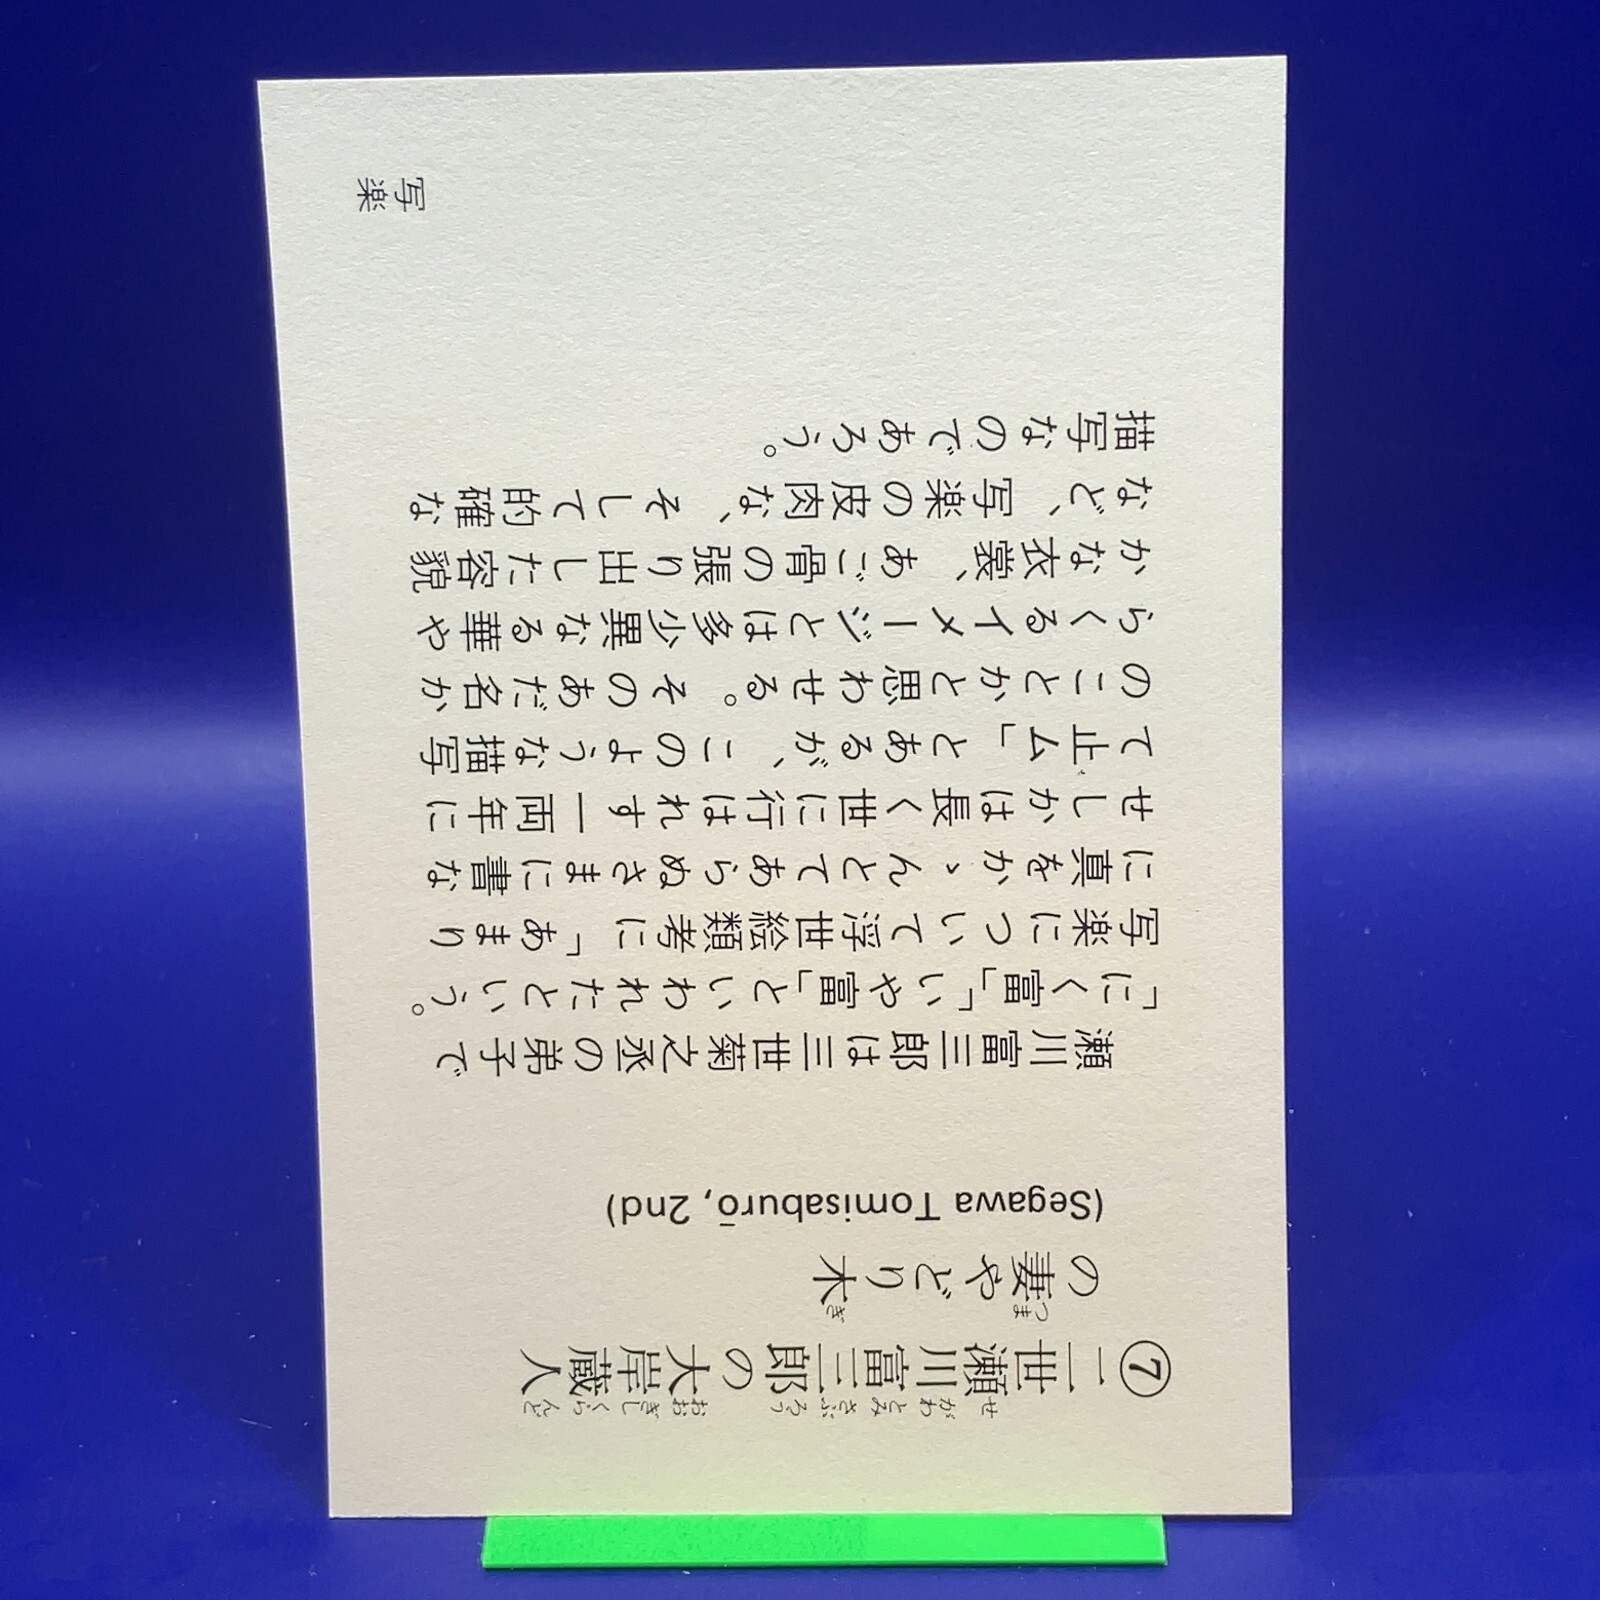 ⑦二世瀬川富三郎の大岸蔵人
せがわとみさぶろう おおぎしくらんど
の妻やどり木
つま ぎ
(Segawa Tomisaburō, 2nd)
瀬川富三郎は三世菊之丞の弟子で
「にく富」「いや富」といわれたという。
写楽について浮世絵類考に「あまり
に真をかゝんとてあらぬさまに書な
せしかは長く世に行はれす一両年に
て止ム」とあるが、このような描写
のことかと思わせる。そのあだ名か
らくるイメージとは多少異なる華や
かな衣裳、あご骨の張り出した容貌
など、写楽の皮肉な、そして的確な
描写なのであろう。
写楽